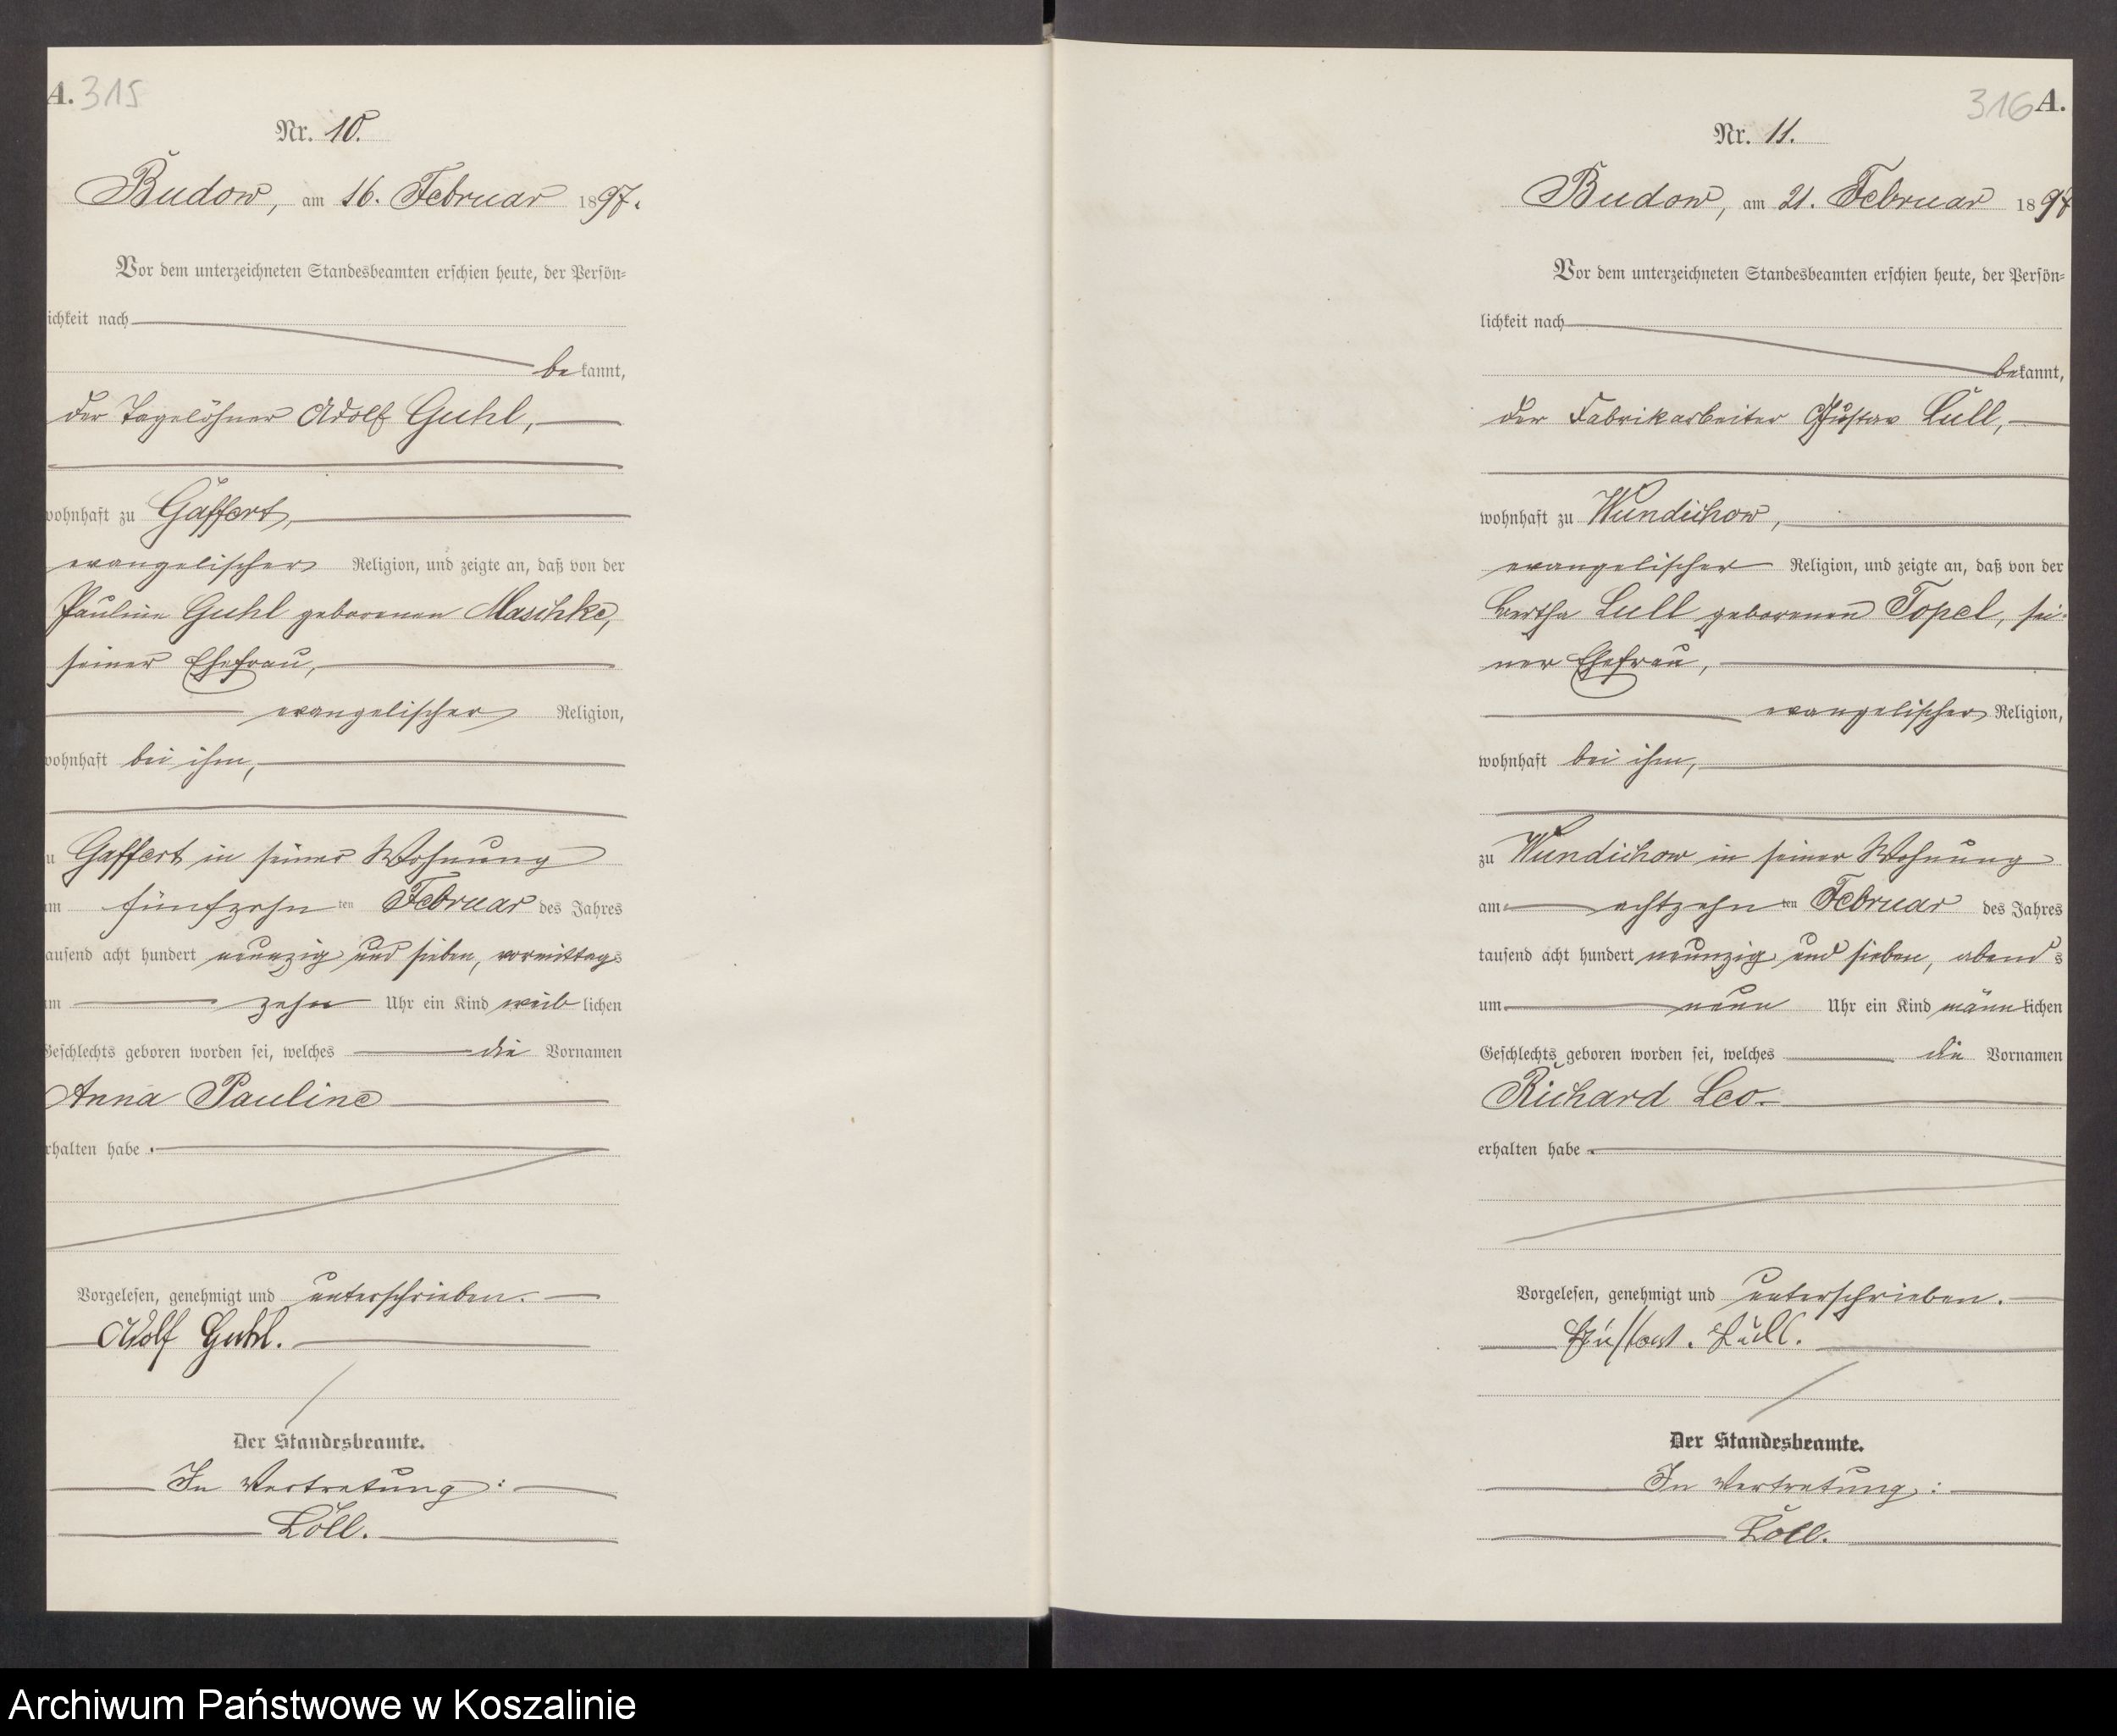 A. 315
Nr. 10.
Budow, am 16. Februar 1897.
Vor dem unterzeichneten Standesbeamten erschien heute, der Persön-
ichkeit nach
bekannt,
der Tagelöhner Adolf Guhl,
wohnhaft zu Gaffert,
evangelischer Religion, und zeigte an, daß von der
Pauline Guhl geborenen Maschke,
seiner Ehefrau,
evangelischer Religion,
wohnhaft bei ihm,
u Gaffert in seiner Wohnung
am fünfzehn ten Februar des Jahres
ausend acht hundert neunzig und sieben, vormittags
um zehn Uhr ein Kind weiblichen
Geschlechts geboren worden sei, welches die Vornamen
Anna Pauline
rhalten habe.
Vorgelesen, genehmigt und unterschrieben.
Adolf Guhl.
Der Standesbeamte.
In Vertretung:
Löll.
316 A.
Nr. 11.
Budow, am 21. Februar 1897
Vor dem unterzeichneten Standesbeamten erschien heute, der Persön-
lichkeit nach
bekannt,
der Fabrikarbeiter Gustav Lüll,
wohnhaft zu Wundichow,
evangelischer Religion, und zeigte an, daß von der
Bertha Lull geborenen Topel, sei-
ner Ehefrau,
evangelischer Religion,
wohnhaft bei ihm,
zu Wundichow in seiner Wohnung
am achtzehn ten Februar des Jahres
tausend acht hundert neunzig und sieben, abends
um neun Uhr ein Kind männlichen
Geschlechts geboren worden sei, welches die Vornamen
Richard Leo.
erhalten habe.
Vorgelesen, genehmigt und unterschrieben.
Gustav. Lüll.
Der Standesbeamte.
In Vertretung:
Löll.
Archiwum Państwowe w Koszalinie